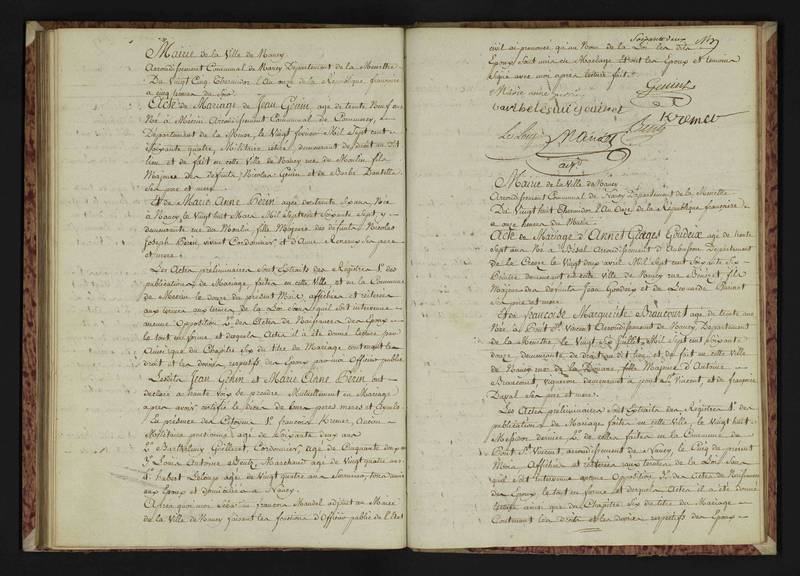 Mairie de la Ville de Nancy
Arrondissement Communal de Nancy Département de la Meurthe
Du Vingt Cinq Thermidor l'An onze de la République française
a cinq heures du Soir
Acte de Mariage de Jean Génin age de trente Neuf ans
Né à Département Communal de Commercy,
Département de la Meuse, le Vingt fevrier Mil Sept cent
Soixante quatre, Militaire retiré, demeurant de droit en
lieu et de fait en cette Ville de Nancy rue du Moulin fils
Majeur des defunts Nicolas Génin et de Barbe
Ses pere et mere
Et de Marie Anne Bérin agée de trente Six ans Née
à Nancy le Vingt huit Mars Mil Sept cent Soixante Sept, y
demeurante rue du Moulin fille Majeure des défunts Nicolas
Joseph Bérin, vivant Cordonnier, et d'Anne Ses pere
et mere
Les Actes préliminaires Sont Extraits des Registres 1° des
publications de Mariage, faites en cette Ville, et en la Commune
de le douze du présent Mois, affichées et
aux termes de la Loi Sans qu'il soit intervenue
aucune Opposition 2° des Actes de Naissances des Epoux
le tout en forme et desquels Actes il a été donné lecture par
Ainsi que du Chapitre Six du titre du Mariage contenant les
droits et les devoirs respectifs des Epoux par moi Officier public
Lesdits Jean Génin et Marie Anne Bérin ont
déclaré à haute voix se prendre Mutuellement en Mariage
après avoir certifié le décès de leurs peres meres et Ayeuls
En presence des Citoyens 1° françois Kremer, Ancien
Militaire pensionné age de Soixante deux ans
2° Barthelemy Cordonnier, agé de Cinquante
3° Louis Antoine Marchand age de Vingt quatre ans
4° hubert Leloup age de Vingt quatre ans tous
aux Epoux et domiciliés à Nancy
Après quoi moi françois Mandel adjoint au Maire
de la Ville de Nancy faisant les fonctions d'Officier public de l'Etat
Soixante deux
civil ai prononcé qu'au Nom de la Loi les dits
Epoux Sont unis en Mariage Et ont les Epoux et temoins
Signé avec moi après lecture faite
Marie anne Genin
Kremer
Mandel
Mairie de la Ville de Nancy
Arrondissement Communal de Nancy Département de la Meurthe
Du Vingt huit Thermidor l'An Onze de la République française
a onze heures du Matin
Acte de Mariage d'Annet age de trente
Sept ans Né à Arrondissement d'Aubusson Département
de la Creuse le Vingt deux avril Mil Sept cent Soixante Six
demeurant en cette ville de Nancy rue fils
Majeur des defunts Jean et de Leonarde
Ses pere et mere
Et de françoise Marguerite Beaucourt age de trente ans
Née à Pont St. Vincent Arrondissement de Nancy, Département
de la Meurthe le Vingt Six Juillet, Mil Sept cent soixante
douze, demeurante de droit au dit lieu et de fait en cette Ville
de Nancy rue de la Douane fille Majeure d'Antoine
Beaucourt, vigneron demeurant a pont St. Vincent, et de françoise
Duval Ses pere et mere.
Les Actes préliminaires Sont Extraits des Registres 1° des
publications de Mariage faites en cette Ville, le Vingt huit
Messidor dernier, 2° de celles faites en la Commune de
Pont St. Vincent, arrondissement de Nancy, le Cinq du présent
Mois, Affichées et aux termes de la Loi, Sans
qu'il soit intervenue aucune Opposition 3° des Actes de Naissances
des Epoux le tout en forme et desquels Actes il a été donné
lecture ainsi que du Chapitre Six du titre du Mariage
Contenant les droits et les devoirs respectifs des Epoux